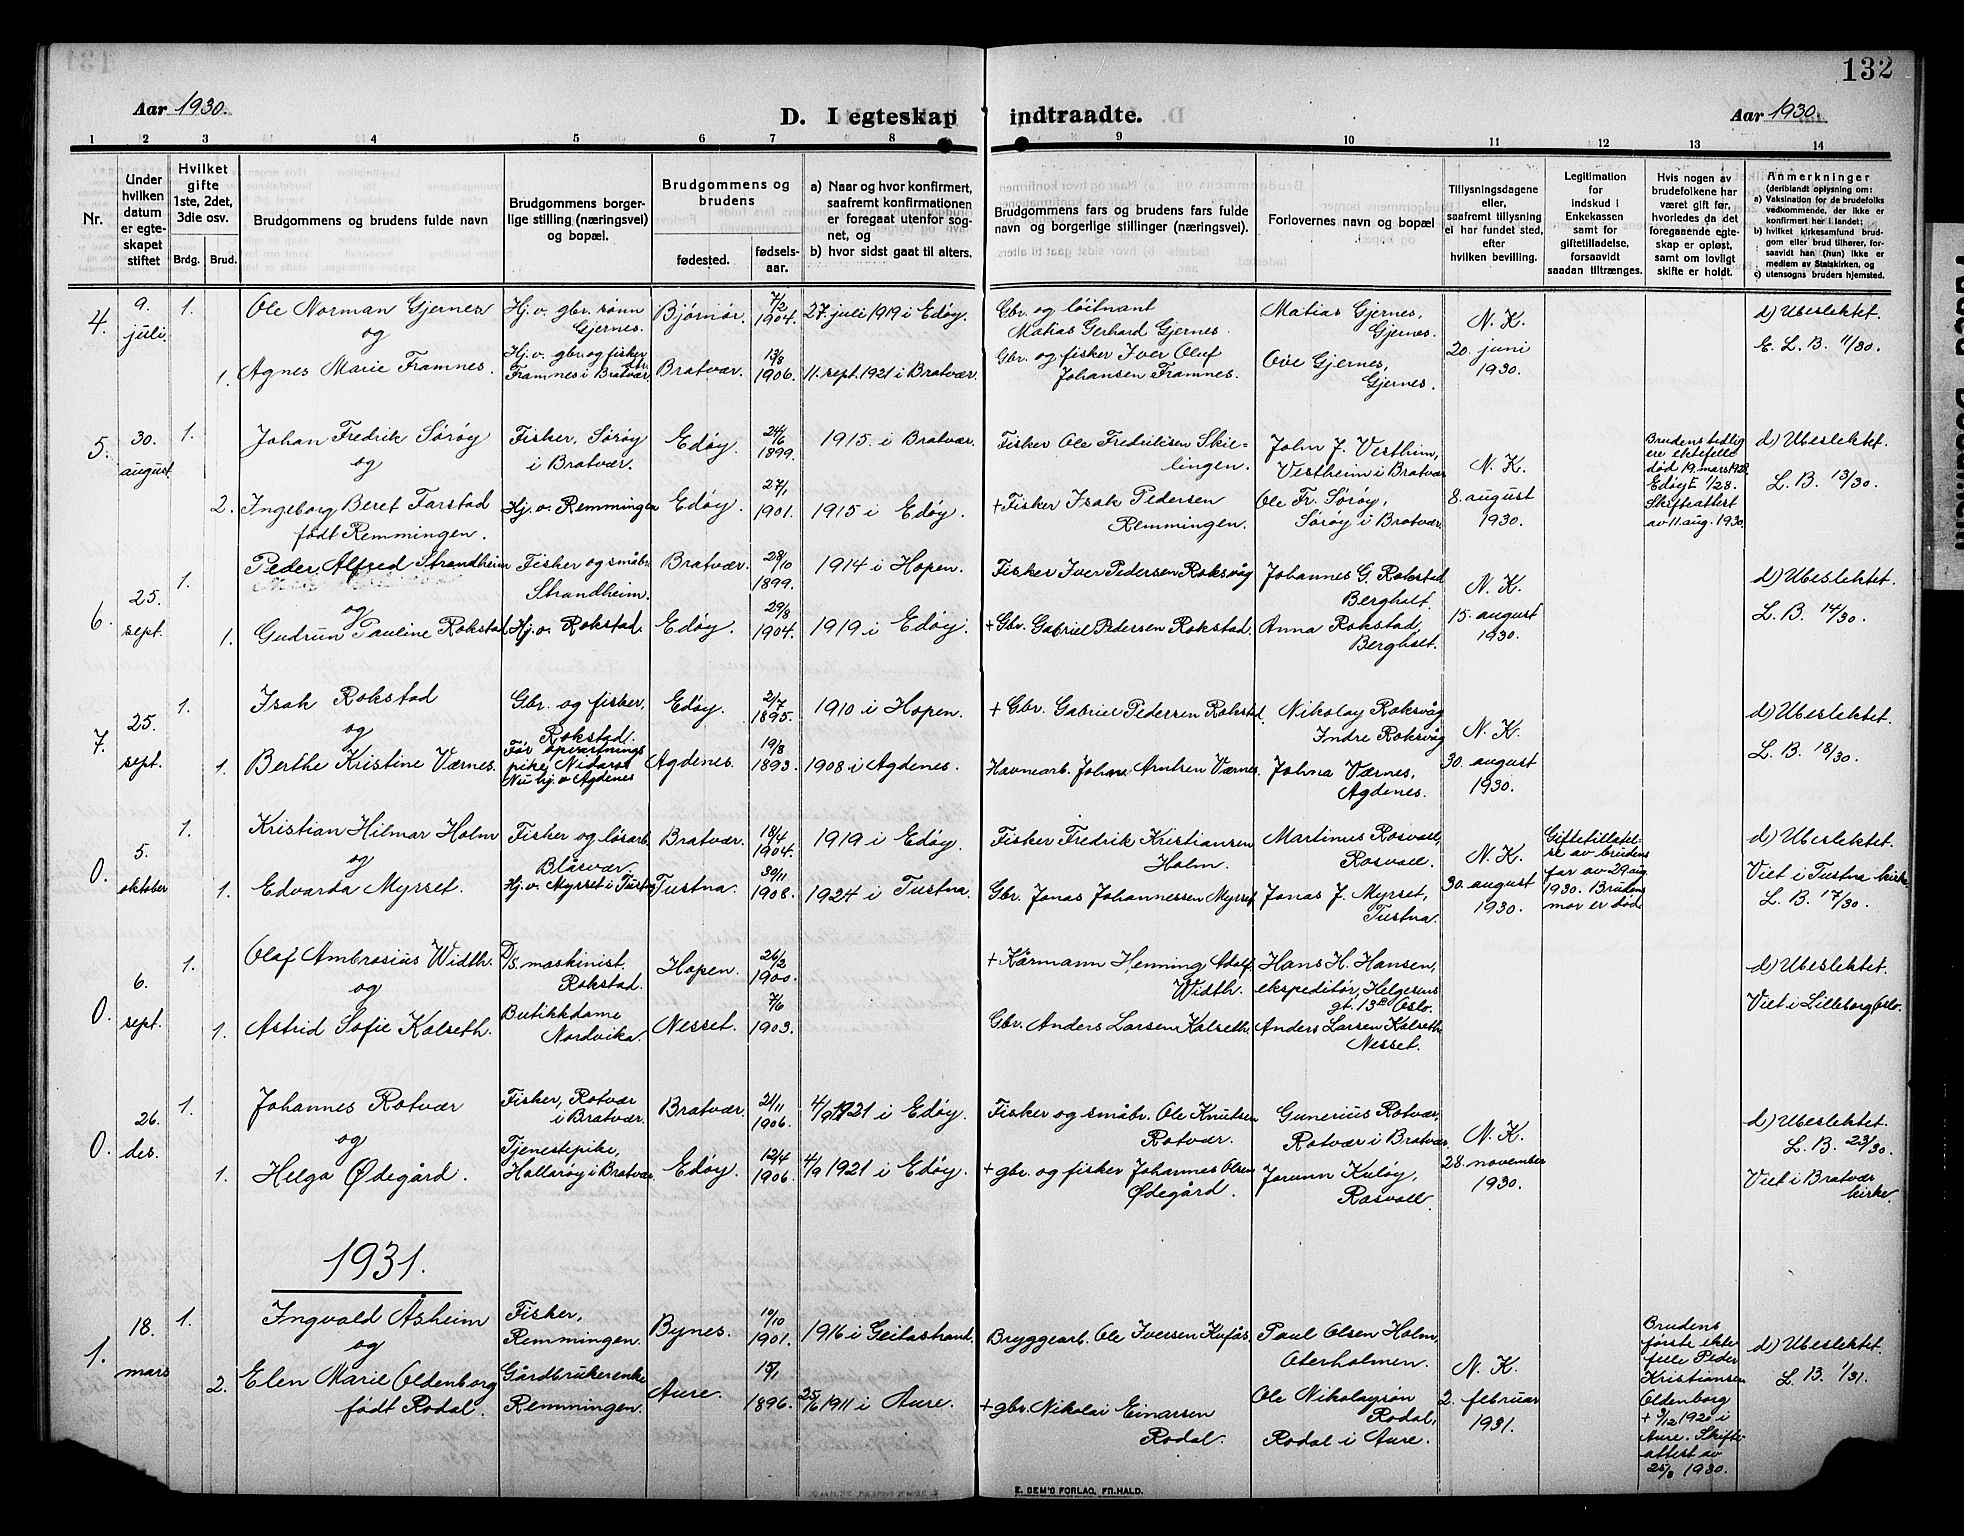 132
Aar 1930.
D. I egteskap indtraadte.
Aar 1930.
1 2 3 4 5 6 7 8 9 10 11 12 13 14
Nr.
Under hvilken datum er egteskapet stiftet
Hvilket gifte 1ste, 2det, 3die osv.
Brdg. Brud.
Brudgommens og brudens fulde navn
Brudgommens borgerlige stilling (næringsvei) og bopæl.
Brudgommens og brudens
fødested.
fødselsaar.
a) Naar og hvor konfirmert, saafremt konfirmationen er foregaat utenfor sognet, og
b) hvor sidst gaat til alters.
Brudgommens fars og brudens fars fulde navn og borgerlige stillinger (næringsvei).
Forlovernes navn og bopæl
Tillysningsdagene eller, saafremt tillysning ei har fundet sted, efter hvilken bevilling.
Legitimation for indskud i Enkekassen samt for giftetilladelse, forsaavidt saadan tiltrænges.
Hvis nogen av brudefolkene har været gift før, hvorledes da det foregaaende egteskap er opløst, samt om lovligt skifte er holdt.
Anmerkninger (deriblandt oplysning om: a) Vaksination for de brudefolks vedkommende, der ikke er konfirmert her i landet; b) hvilket kirkesamfund brudgom eller brud tilhører, forsaavidt han (hun) ikke er medlem av Statskirken, og c) utensogns bruders hjemsted.
4. 9. juli 1. Ole Norman Gjernes Hj. v. gbr. sønn Gjernes. Bjørnør. 7/2 1904. 27. juli 1919 i Edøy. Gbr. og løitnant Matias Gerhard Gjernes. Matias Gjernes, Gjernes. N. K. 20. juni 1930. d) Ubeslektet. E. L. B. 11/30.
og
1. Agnes Marie Framnes. Hj. v. gbr. og fisker Framnes i Bratvær. Bratvær. 13/8 1906. 11. sept. 1921 i Bratvær. Gbr. og fisker Iver Oluf Johansen Framnes. Ove Gjernes, Gjernes.
5. 30. august 1. Johan Fredrik Sørøy Fisker, Sørøy i Bratvær. Edøy. 24/6 1899. 1915. i Bratvær. Fisker Ole Fredriksen Skilingen. John J. Vestheim, Vestheim i Bratvær N. K. 8. august 1930. Brudens tidligere ektefelle død 19. mars 1928 Edøy 1/28. Skifteattest av 11. aug. 1930 d) Ubeslektet. L. B. 13/30.
og
2. Ingeborg Beret Farstad født Remmingen. Hj. v. Remmingen Edøy. 27/1 1901. 1915 i Edøy. + Fisker Isak Pedersen Remmingen. Ole Fr. Sørøy, Sørøy i Bratvær.
6. 25. sept. 1. Peder Alfred Strandheim Fisker og småbr. Strandheim. Bratvær. 28/10 1899. 1914 i Hopen. Fisker Iver Pedersen Roksvåg Johannes G. Rokstad Bergholt. N. K. 15. august 1930. d) Ubeslektet. L. B. 14/30.
og
1. Gudrun Pauline Rokstad. Hj. v. Rokstad. Edøy. 29/8 1904. 1919 i Edøy. + Gbr. Gabriel Pedersen Rokstad. Anna Rokstad, Bergholt.
7. 25. sept. 1. Isak Rokstad Gbr. og fisker, Rokstad. Edøy. 2/7 1895. 1910 i Hopen. + Gbr. Gabriel Pedersen Rokstad. Nikolay Roksvåg Indre Roksvåg N. K. 30. august 1930. d) Ubeslektet. L. B. 18/30.
og
1. Berthe Kristine Værnes. Før opvartningspike, Nidaros Nu hj. v. Agdenes Agdenes. 19/8 1893. 1908 i Agdenes. Havnearb. Johan Arntsen Værnes. Johna Værnes, Agdenes.
0. 5. oktober 1. Kristian Hilmar Holm Fisker og løsarb. Blåsvær. Bratvær. 18/4 1904. 1919 i Edøy. Fisker Fredrik Kristiansen Holm. Martinus Rosvoll, Rosvoll. N. K. 30. august 1930. Giftetillatelse av brudens far av 29. aug. 1930. Brudens mor er død. d) Ubeslektet. Viet i Tustna kirke L. B. 17/30.
og
1. Edvarda Myrset. Hj. v. Myrset i Tustna Tustna. 30/11 1908. 1924 i Tustna. Gbr. Jonas Johannessen Myrset Jonas J. Myrset, Tustna.
0. 6. sept. 1. Olaf Ambrosius Width. D/S. maskinist. Rokstad. Hopen. 26/2 1900. + Kårmann Henning Adolf Width. Hans H. Hansen, ekspeditør, Helgesens gt. 13 B Oslo. d) Ubeslektet. Viet i Lilleborg, Oslo.
og
1. Astrid Sofie Kalseth. Butikkdame Nordvika. Nesset. 7/6 1903. Gbr. Anders Larsen Kalseth. Anders Larsen Kalseth Nesset.
0. 26. des. 1. Johannes Rotvær Fisker, Rotvær i Bratvær. Bratvær. 21/11 1906. 4/9 1921 i Edøy. Fisker og småbr. Ole Knutsen Rotvær. Gunerius Rotvær, Rotvær i Bratvær. N. K. 28. november 1930. d) Ubeslektet. L. B. 23/30. Viet i Bratvær kirke.
og
1. Helga Ødegård. Tjenestepike, Hallarøy i Bratvær Edøy. 12/4 1906. 4/9 1921 i Edøy. + gbr. og fisker Johannes Olsen Ødegård. Jorunn Kuløy, Rosvoll.
1931.
1. 18. mars 1. Ingvald Åsheim Fisker, Remmingen. Bynes. 10/10 1901. 1916 i Geitastrand. Bryggearb. Ole Iversen Kufås Paul Olsen Holm, Oterholmen. N. K. 2. februar 1931. Brudens første ektefelle Peder Kristiansen Oldenborg + 9/12 1920 i Aure. Skifteattest av 25/8 1930. d) Ubeslektet. L. B. 1/31.
og
2. Elen Marie Oldenborg født Rodal. Gårdbrukerenke Remmingen. Aure. 15/1 1896. 25/6 1911 i Aure. + gbr. Nikolai Einarsen Rodal. Ole Nikolaysøn Rodal, Rodal i Aure.
E. SEM'S FORLAG, FR.HALD.